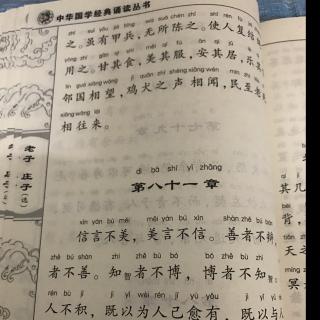 中华国学经典诵读丛书
之。虽有甲兵，无所陈之。使人复结
用之。甘其食，美其服，安其居，乐其
lín guó xiāng wàng jī quǎn zhī shēng xiāng wén mín zhì lǎo
邻国相望，鸡犬之声相闻，民至老
xiāng wǎng lái
相往来。
dì bā shí yī zhāng
第八十一章
xìn yán bù měi měi yán bù xìn shàn zhě bù biàn
信言不美，美言不信。善者不辩，
zhě bù shàn zhì zhě bù bó bó zhě bù zhì
者不善。知智者不博，博者不知智
rén bù jī jì yǐ wèi rén jǐ yù yǒu jì yǐ yǔ
人不积，既以为人己愈有，既以与
老子 庄子（选）
其几
背，
天之
冥